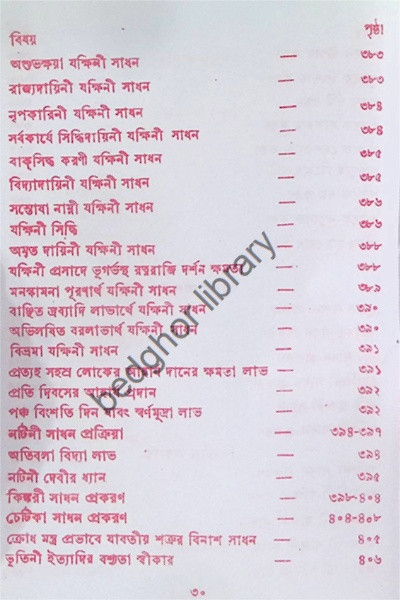 বিষয় পৃষ্ঠা
অশুভক্ষয়া যক্ষিনী সাধন — ৩৮৩
রাজ্যদায়িনী যক্ষিনী সাধন — ৩৮৩
নৃপকারিনী যক্ষিনী সাধন — ৩৮৪
সর্বকার্যে সিদ্ধিদায়িনী যক্ষিনী সাধন — ৩৮৪
বাক্‌সিদ্ধ করণী যক্ষিনী সাধন — ৩৮৫
বিদ্যাদায়িনী যক্ষিনী সাধন — ৩৮৫
সন্তোষা নাম্নী যক্ষিনী সাধন — ৩৮৬
যক্ষিনী সিদ্ধি — ৩৮৬
অমৃত দায়িনী যক্ষিনী সাধন — ৩৮৮
যক্ষিনী প্রসাদে ভূগর্ভস্থ রত্নরাজি দর্শন ক্ষমতা — ৩৮৮
মনস্কামনা পূরণার্থ যক্ষিনী সাধন — ৩৮৯
বাঞ্ছিত দ্রব্যাদি লাভার্থে যক্ষিনী সাধন — ৩৯০
অভিলষিত বরলাভার্থে যক্ষিনী সাধন — ৩৯০
বিভ্রমা যক্ষিনী সাধন — ৩৯১
প্রত্যহ সহস্র লোকের আহার্য দানের ক্ষমতা লাভ — ৩৯১
প্রতি দিবসের আহার্য প্রদান — ৩৯২
পঞ্চ বিংশতি দিন যাবৎ স্বর্ণমুদ্রা লাভ — ৩৯২
নটিনী সাধন প্রক্রিয়া — ৩৯৪-৩৯৭
অতিবলা বিদ্যা লাভ — ৩৯৪
নটিনী দেবীর ধ্যান — ৩৯৫
কিঙ্করী সাধন প্রকরণ — ৩৯৮-৪০৪
চেটিকা সাধন প্রকরণ — ৪০৪-৪০৮
ক্রোধ মন্ত্র প্রভাবে যাবতীয় শত্রুর বিনাশ সাধন — ৪০৫
ভূতিনী ইত্যাদির বশ্যতা স্বীকার — ৪০৬
৩০
bedghor library